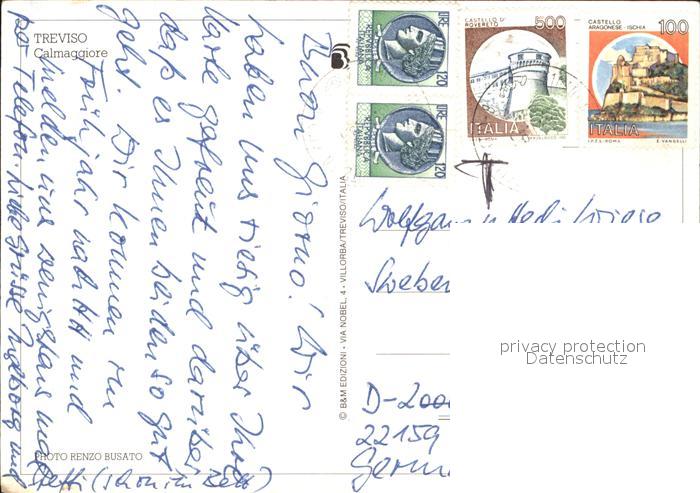 TREVISO
Calmaggiore
Buon giorno! Wir
haben uns riesig über Ihre
Karte gefreut und darüber
daß es Ihnen beiden so gut
geht. Wir kommen im
Frühjahr nach HH und
melden uns wenigstens mal
per Telefon. Liebe Grüße Ingeborg und
(schon im Bett)
PHOTO RENZO BUSATO
© B&M EDIZIONI - VIA NOBEL, 4 - VILLORBA/TREVISO/ITALIA
LIRE 120
REPUBBLICA ITALIANA
LIRE 120
REPUBBLICA ITALIANA
CASTELLO DI ROVERETO
500
ITALIA
CASTELLO ARAGONESE - ISCHIA
100
ITALIA
I.P.Z.S. - ROMA
E. VANGELLI
Wolfgang u.
D-2000
22159
Germ
privacy protection
Datenschutz